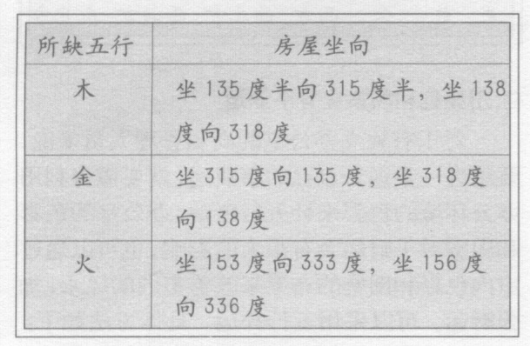 所缺五行 房屋坐向
木 坐 135 度半向 315 度半，坐 138
度向 318 度
金 坐 315 度向 135 度，坐 318 度
向 138 度
火 坐 153 度向 333 度，坐 156 度
向 336 度